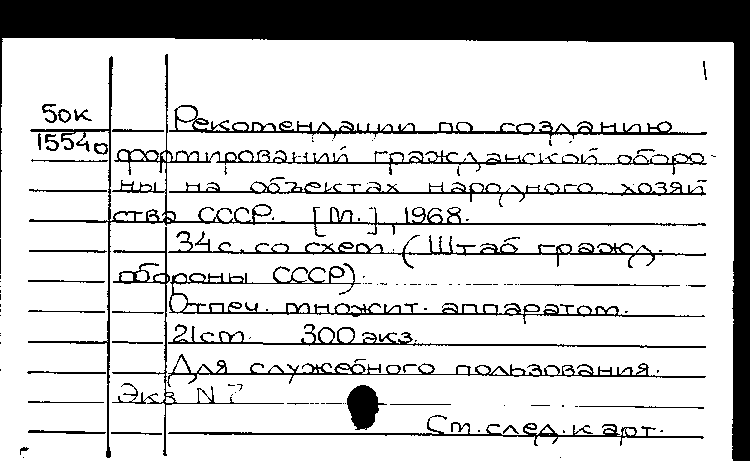 1
50к Рекомендации по созданию
15540 формирований гражданской оборо-
ны на объектах народного хозяй
ства СССР. [М.], 1968.
34с. со схем. (Штаб гражд.
обороны СССР).
Отпеч. множит. аппаратом.
21см. 300 экз.
Для служебного пользования.
Экз N 7
См. след. к арт.